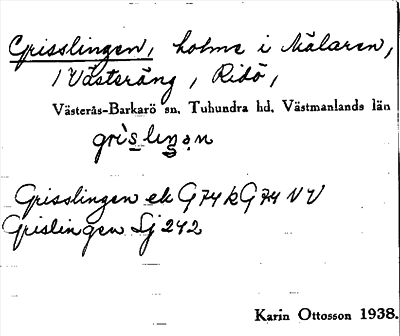 Grisslingen, holme i Mälaren,
/ Västeräng, Ridö,
Västerås-Barkarö sn. Tuhundra hd. Västmanlands län
grìsliŋən
Grisslingen ek G74 k G74 VV
Grislingen Sj 242
Karin Ottosson 1938.